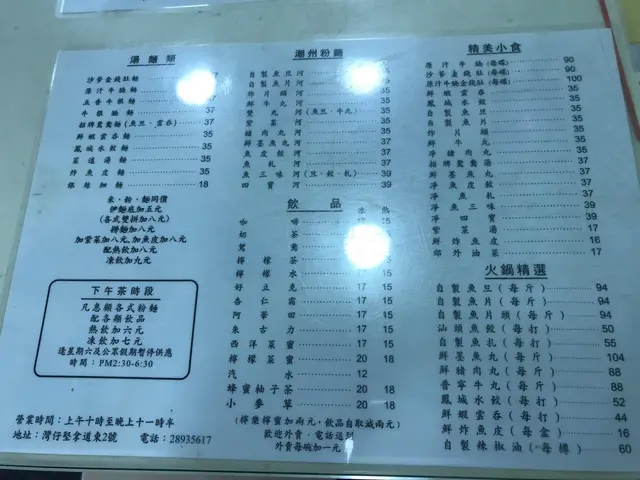 湯麵類
沙爹金錢肚麵 37
原汁牛腩麵
五香牛根麵 37
牛根腩麵 37
招牌鴛鴦麵(魚旦·雲吞) 37
鮮蝦雲吞麵 35
鳳城水餃麵 35
菜遠湯麵 35
炸魚皮麵 35
銀絲細麵 18
米、粉、麵同價
伊麵底加五元
(各式雙拼加八元)
撈麵加八元
加紫菜加八元,加魚皮加八元
配熱飲加八元
凍飲加九元
下午茶時段
凡惠顧各式粉麵
配各類飲品
熱飲加六元
凍飲加七元
逢星期六及公眾假期暫停供應
時間:PM2:30-6:30
營業時間:上午十時至晚上十一時半
地址:灣仔堅拿道東2號 電話:28935617
潮州粉麵
自製魚旦河
自製魚片河
炸片頭河
鮮牛丸河
雙丸河(魚旦、牛丸)
紫菜河 35
豬肉丸河 35
鮮墨魚丸河 37
魚皮餃河 37
魚札河 37
魚三味河(旦、餃、札) 39
四寶河 39
飲品
凍 熱
咖啡
奶茶
鴛鴦
檸檬茶 15
檸檬水 17 15
好立克 17 15
杏仁霜 17 15
阿華田 17 15
朱古力 17 15
西洋菜蜜 17 15
檸檬菜蜜 20 18
汽水 12
蜂蜜柚子茶 20 18
小麥草 20 18
(檸樂檸蜜加兩元,飲品自取減兩元)
歡迎外賣,電話送到
外賣每碗加一元
精美小食
原汁牛腩(每碟) 90
沙爹金錢肚(每碟) 90
原汁牛腩金錢肚(每碟) 100
鮮蝦雲吞 35
鳳城水餃 35
自製魚旦 35
自製魚片 35
炸片頭 35
鮮牛丸 35
淨豬肉丸 35
招牌鴛鴦湯 37
淨墨魚丸 37
淨魚皮餃 37
淨魚札 37
淨魚三味 39
淨四寶 39
紫菜湯 17
鮮炸魚皮 16
郊外油菜 17
火鍋精選
自製魚旦(每斤) 94
自製魚片(每斤) 94
自製魚片頭(每斤) 94
汕頭魚餃(每打) 50
自製魚札(每打) 55
鮮墨魚丸(每斤) 104
鮮豬肉丸(每斤) 88
普寧牛丸(每斤) 88
鳳城水餃(每打) 52
鮮蝦雲吞(每打) 44
鮮炸魚皮(每盒) 16
自製辣椒油(每樽) 60